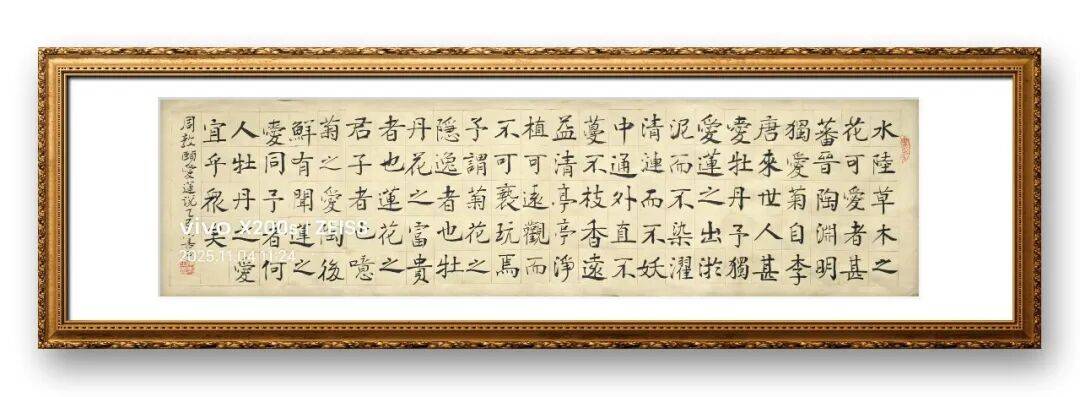 水陸草木之
花可愛者甚
蕃晉陶淵明
獨愛菊自李
唐來世人甚
愛牡丹予獨
愛蓮之出淤
泥而不染濯
清漣而不妖
中通外直不
蔓不枝香遠
益清亭亭淨
植可遠觀而
不可褻玩焉
予謂菊花之
隱逸者也牡
丹花之富貴
者也蓮花之
君子者也噫
菊之愛陶後
鮮有聞蓮之
愛同予者何
人牡丹之愛
宜乎衆矣
周敦頤愛蓮説乙巳
vivo X200s | ZEISS
2025.11.04 11:24